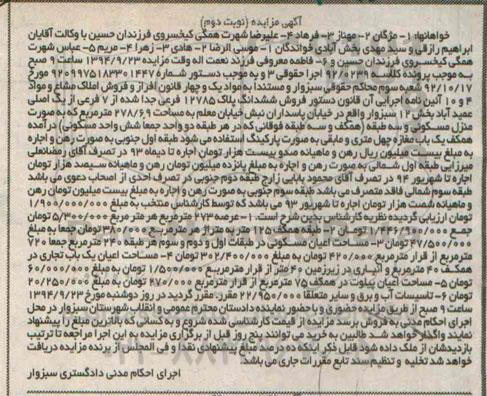 آگهی مزایده (نوبت دوم)
خواهانها: ۱- مژگان ۲- مهناز ۳- فرهاد ۴- علیرضا شهرت همگی کیخسروی فرزندان حسین با وکالت آقایان
ابراهیم رازقی و سید مهدی بخش آبادی خواندگان ۱- موسی الرضا ۲- هادی ۳- زهرا ۴- مریم ۵- عباس شهرت
همگی کیخسروی فرزندان حسین و ۶- فاطمه معروفی فرزند نعمت اله وقت مزایده ۱۳۹۴/۹/۲۳ ساعت ۹ صبح
به موجب پرونده کلاسه ۹۲/۰۲۳۹ اجرا حقوقی ۳ و به موجب دستور شماره ۹۲۰۹۹۷۵۱۸۳۳۰۱۴۴۷ مورخ
۹۲/۱۰/۱۷ شعبه سوم محاکم حقوقی سبزوار و مستندا به مواد یک و چهار قانون افراز و فروش املاک مشاع و مواد
۴ و ۱۰ آئین نامه اجرایی آن قانون دستور فروش ششدانگ پلاک ۱۲۷۸۵ فرعی جدا شده از ۷ فرعی از یک اصلی
عمید آباد بخش ۱۲ سبزوار واقع در خیابان پاسداران نبش خیابان معلم به مساحت ۲۷۸/۶۹ مترمربع که به صورت
منزل مسکونی و سه طبقه (همکف و سه طبقه فوقانی که در هر طبقه دو واحد جمعا شش واحد مسکونی) درآمده
همکف یک باب مغازه چهل متری و مابقی به صورت پارکینگ استفاده می شود طبقه اول جنوبی به صورت رهن و اجاره
به مبلغ بیست میلیون ریال رهن و ماهیانه صدو بیست هزار تومان اجاره تا دیماه ۹۳ در تصرف آقای رمضانعلی
میرزایی طبقه اول شمالی به صورت رهن و اجاره به مبلغ پانزده میلیون تومان رهن و ماهیانه سیصد هزار تومان
اجاره تا شهریور ۹۴ در تصرف آقای محمود بابایی زارج طبقه دوم جنوبی در تصرف احدی از اصحاب دعوی می باشد
طبقه سوم شمالی فاقد متصرف می باشد طبقه سوم جنوبی به صورت رهن و اجاره به مبلغ بیست میلیون تومان رهن
و ماهیانه شصت هزار تومان اجاره تا شهریور ۹۳ می باشد که توسط کارشناس منتخب به مبلغ ۱/۹۰۰/۰۰۰/۰۰۰
تومان ارزیابی گردیده نظریه کارشناس بدین شرح است. ۱- عرصه ۲۷۳ مترمربع هر متر مربع ۵/۳۰۰/۰۰۰ تومان
جمع ۱/۴۴۶/۹۰۰/۰۰۰ تومان ۲- طبقه همکف ۱۲۵ متر به متراژ هر مترمربع ۳۸۰/۰۰۰ تومان جمعا به مبلغ
۴۷/۵۰۰/۰۰۰ تومان ۳- مساحت اعیان مسکونی در طبقات اول و دوم و سوم هر طبقه ۲۴۰ مترمربع جمعا ۷۲۰
مترمربع از قرار مترمربع ۴۲۰/۰۰۰ تومان به مبلغ ۳۰۲/۴۰۰/۰۰۰ تومان ۴- مساحت اعیان یک باب تجاری در
همکف ۴۰ مترمربع و انباری در زیرزمین ۴۰ متر از قرار مترمربع ۱/۵۰۰/۰۰۰ تومان به مبلغ ۶۰/۰۰۰/۰۰۰
تومان ۵- مساحت اعیان پیلوت در همکف ۷۵ مترمربع از قرار مترمربع ۲۷۰/۰۰۰ تومان به مبلغ ۲۰/۲۵۰/۰۰۰
تومان ۶- تاسیسات آب و برق و سایر متعلقا ۲۲/۹۵۰/۰۰۰ مقرر. مقرر گردید در روز دوشنبه مورخ ۱۳۹۴/۹/۲۳
ساعت ۹ صبح از طریق مزایده حضوری و با حضور نماینده دادستان محترم عمومی و انقلاب شهرستان سبزوار در محل
اجرای احکام مدنی به فروش برسد مزایده از قیمت کارشناسی شده شروع و به کسانی که بالاترین مبلغ را پیشنهاد
نمایند واگذار خواهد شد طالبین به خرید می توانند پنج روز قبل از برگزاری مزایده به این اجرا مراجعه تا ترتیب
بازدیدشان از ملک داده شود قابل ذکر اینکه ده درصد مبلغ پیشنهادی نقدا و فی المجلس از برنده مزایده دریافت
خواهد شد تخلیه و تنظیم سند تابع مقررات جاری می باشد.
اجرای احکام مدنی دادگستری سبزوار